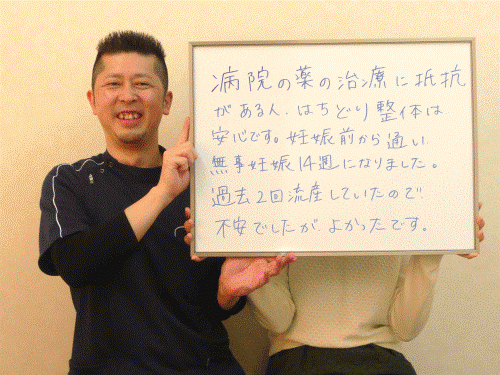 病院の薬の治療に抵抗
がある人、はちどり整体は
安心です。妊娠前から通い
無事妊娠14週になりました。
過去2回流産していたので
不安でしたが、よかったです。